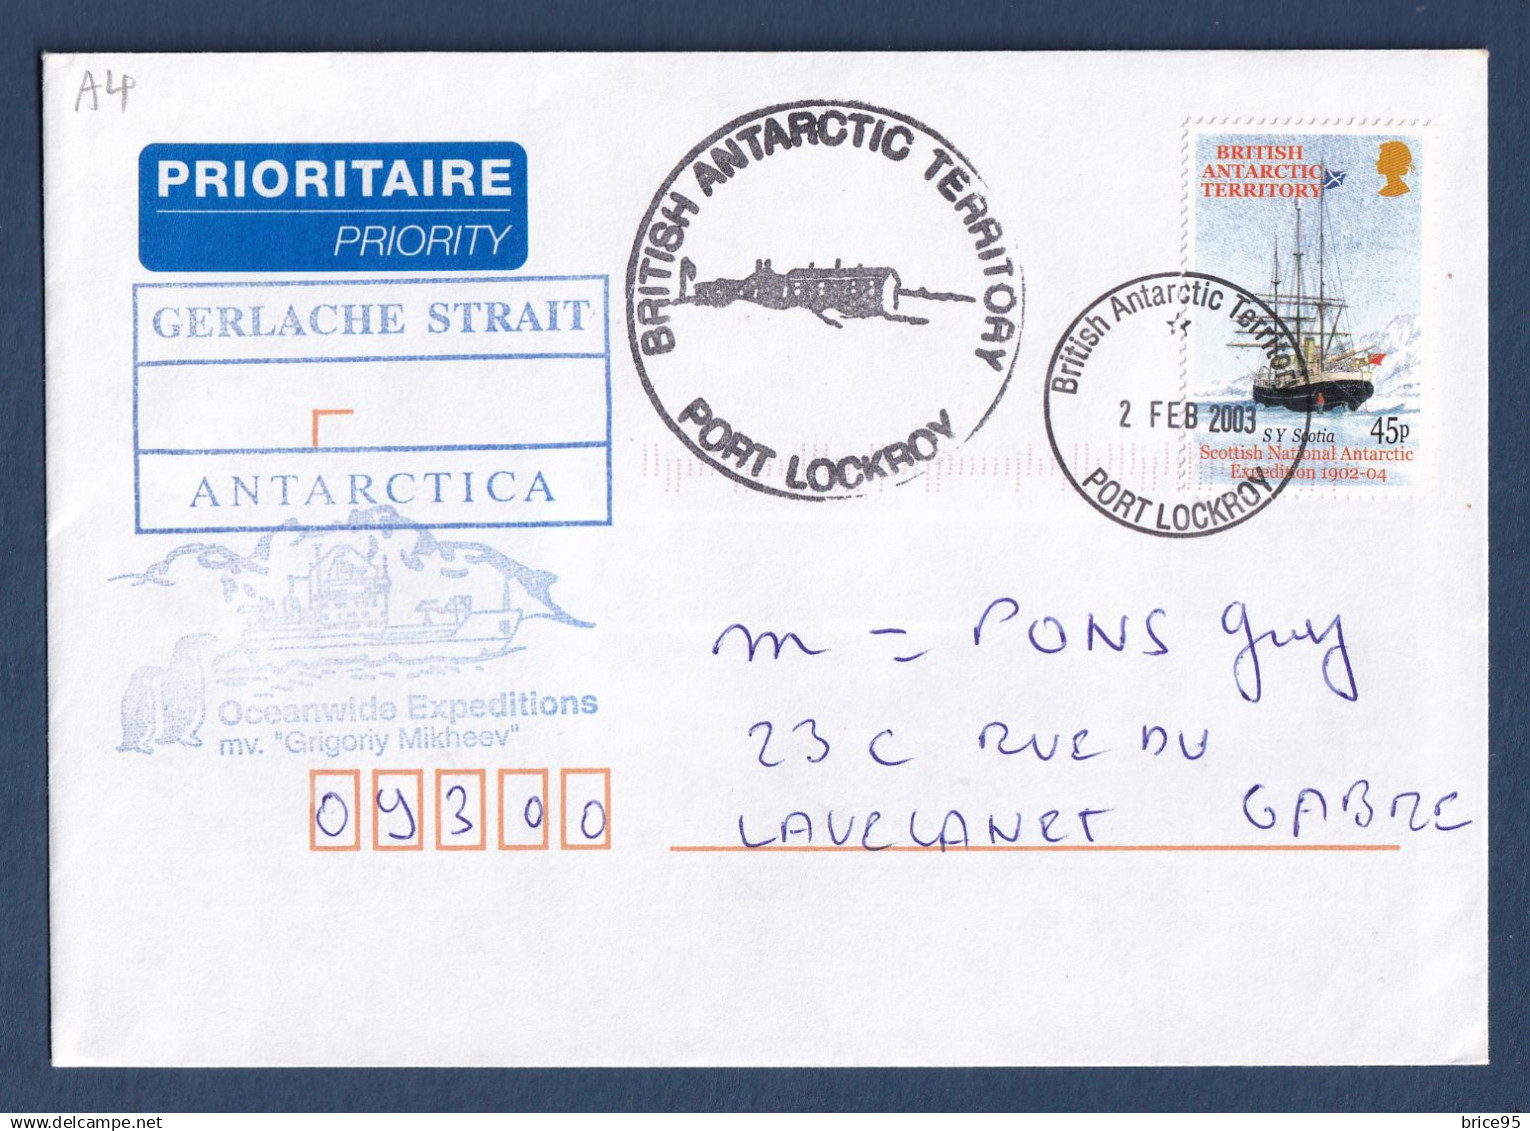 A4
PRIORITAIRE
PRIORITY
GERLACHE STRAIT
ANTARCTICA
Oceanwide Expeditions
mv. "Grigoriy Mikheev"
BRITISH ANTARCTIC TERRITORY
PORT LOCKROY
BRITISH
ANTARCTIC
TERRITORY
SY Scotia
45p
Scottish National Antarctic
Expedition 1902-04
British Antarctic Territory
2 FEB 2003
PORT LOCKROY
m = PONS Guy
23 C RUE DU
GABRE
LAVELANET
09300
brice95